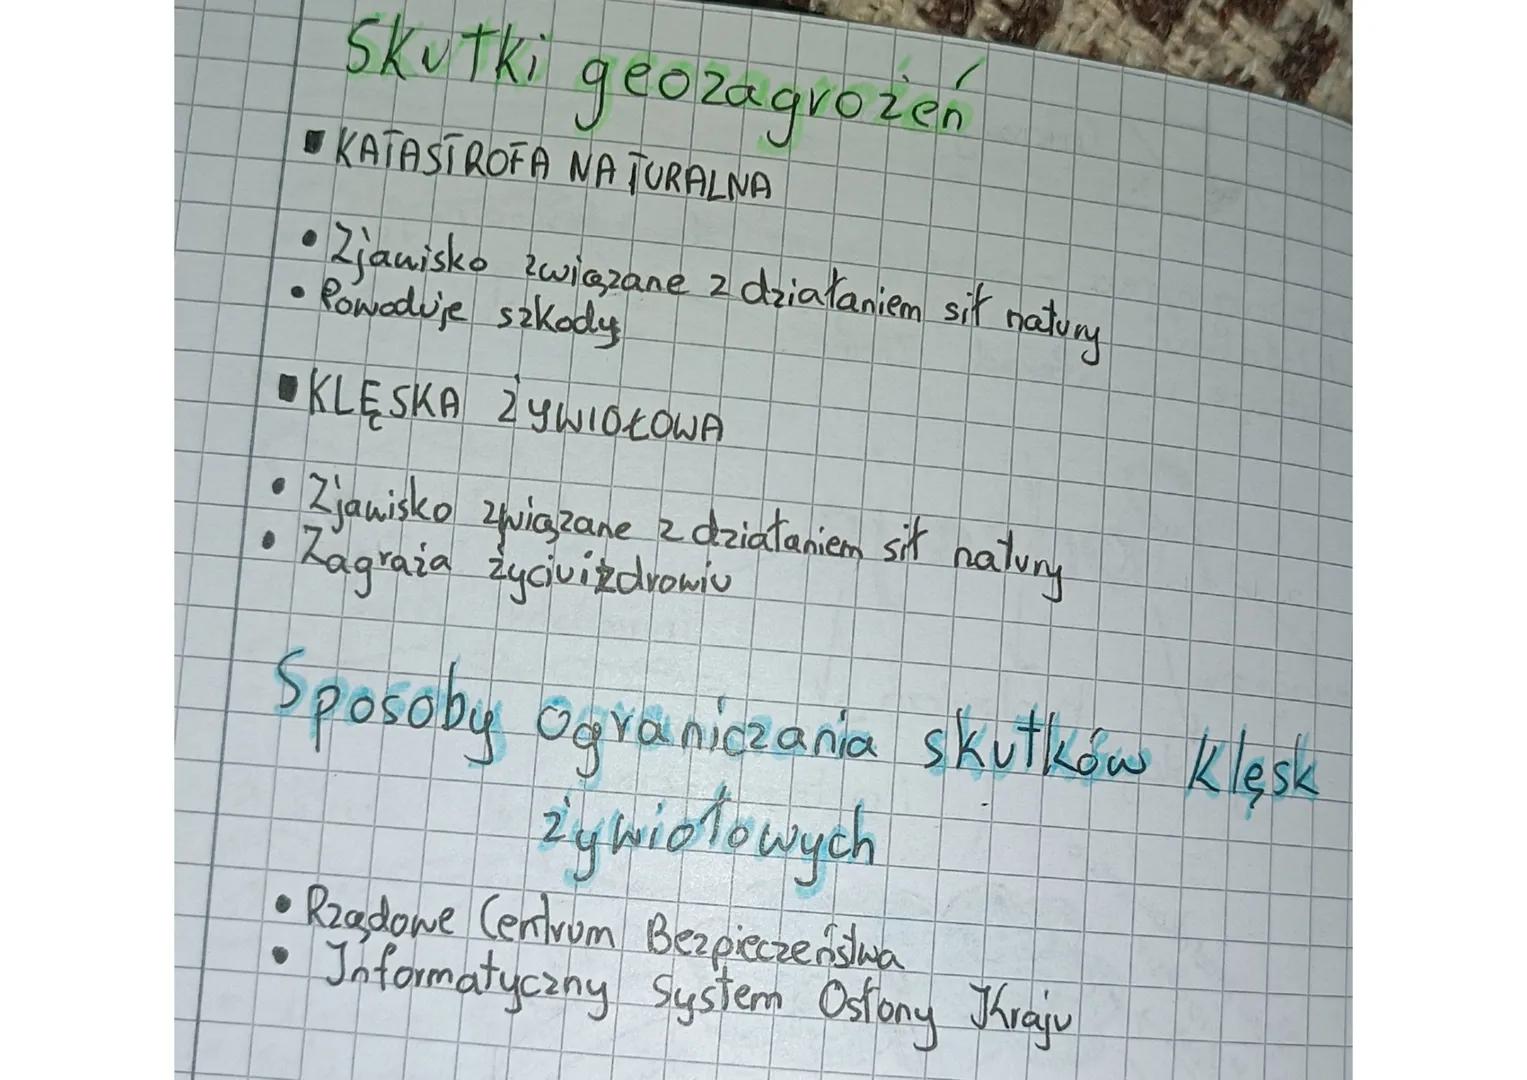 Skutki geozagrożeń
KATASTROFA NATURALNA
Zjawisko związane z działaniem sił natury
Powoduje szkody
KLĘSKA ŻYWIOŁOWA
Zjawisko związane z działaniem sił natury
Zagraża życiu i zdrowiu
Sposoby ograniczania skutków klęsk
żywiołowych
Rządowe Centrum Bezpieczeństwa
Informatyczny System Osłony Kraju